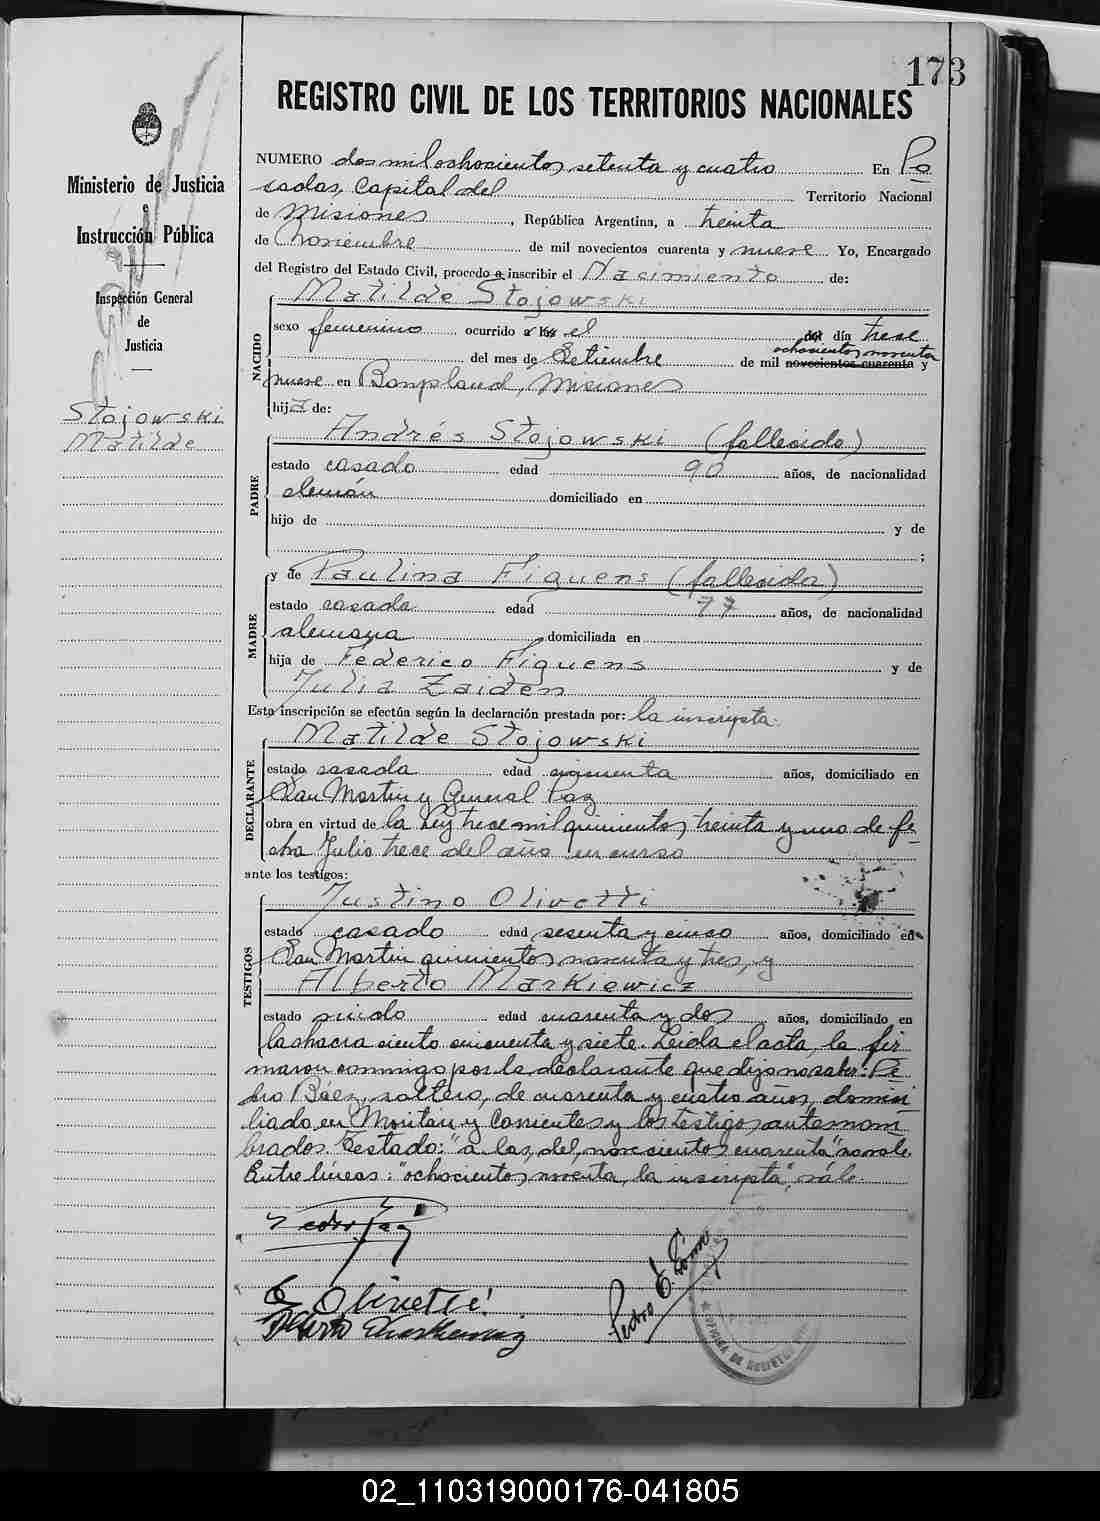 173
REGISTRO CIVIL DE LOS TERRITORIOS NACIONALES
Ministerio de Justicia
e
Instrucción Pública
Inspección General
de
Justicia
Stojowski
Matilde
NUMERO dos mil ochocientos setenta y cuatro En Po
sadas, Capital del Territorio Nacional
de Misiones, República Argentina, a treinta
de Noviembre de mil novecientos cuarenta y nueve Yo, Encargado
del Registro del Estado Civil, procedo a inscribir el Nacimiento de:
NACIDO
Matilde Stojowski
sexo femenino ocurrido a las el del día trece
ochocientos noventa
del mes de Setiembre de mil novecientos cuarenta y
nueve en Bonpland, Misiones
hija de:
PADRE
Andrés Stojowski (fallecido)
estado casado edad 90 años, de nacionalidad
alemán domiciliado en
hijo de y de
;
MADRE
y de Paulina Figuens (fallecida)
estado casada edad 77 años, de nacionalidad
alemana, domiciliada en
hija de Federico Figuens y de
Julia Zaiden
Esta inscripción se efectúa según la declaración prestada por: la inscripta.
DECLARANTE
Matilde Stojowski
estado casada edad cincuenta años, domiciliado en
San Martin y General Paz
obra en virtud de la Ley trece mil quinientos treinta y uno de fe
cha Julio trece del año en curso
ante los testigos:
TESTIGOS
Justino Olivetti
estado casado edad sesenta y cinco años, domiciliado en
San Martin quinientos noventa y tres, y
Alberto Markiewicz
estado viudo edad cuarenta y dos años, domiciliado en
la chacra ciento cincuenta y siete. Leida el acta, la fir
maron conmigo por la declarante que dijo no saber: Pe
dro Báez, soltero, de cuarenta y cuatro años, domici
liado en Moritán y Corrientes y los testigos antes nom
brados. Testado: "a las, del, novecientos cuarenta" no vale.
Entre líneas: "ochocientos noventa, la inscripta", vale.
Olivetti
OFICINA DE REGISTRO
02_110319000176-041805